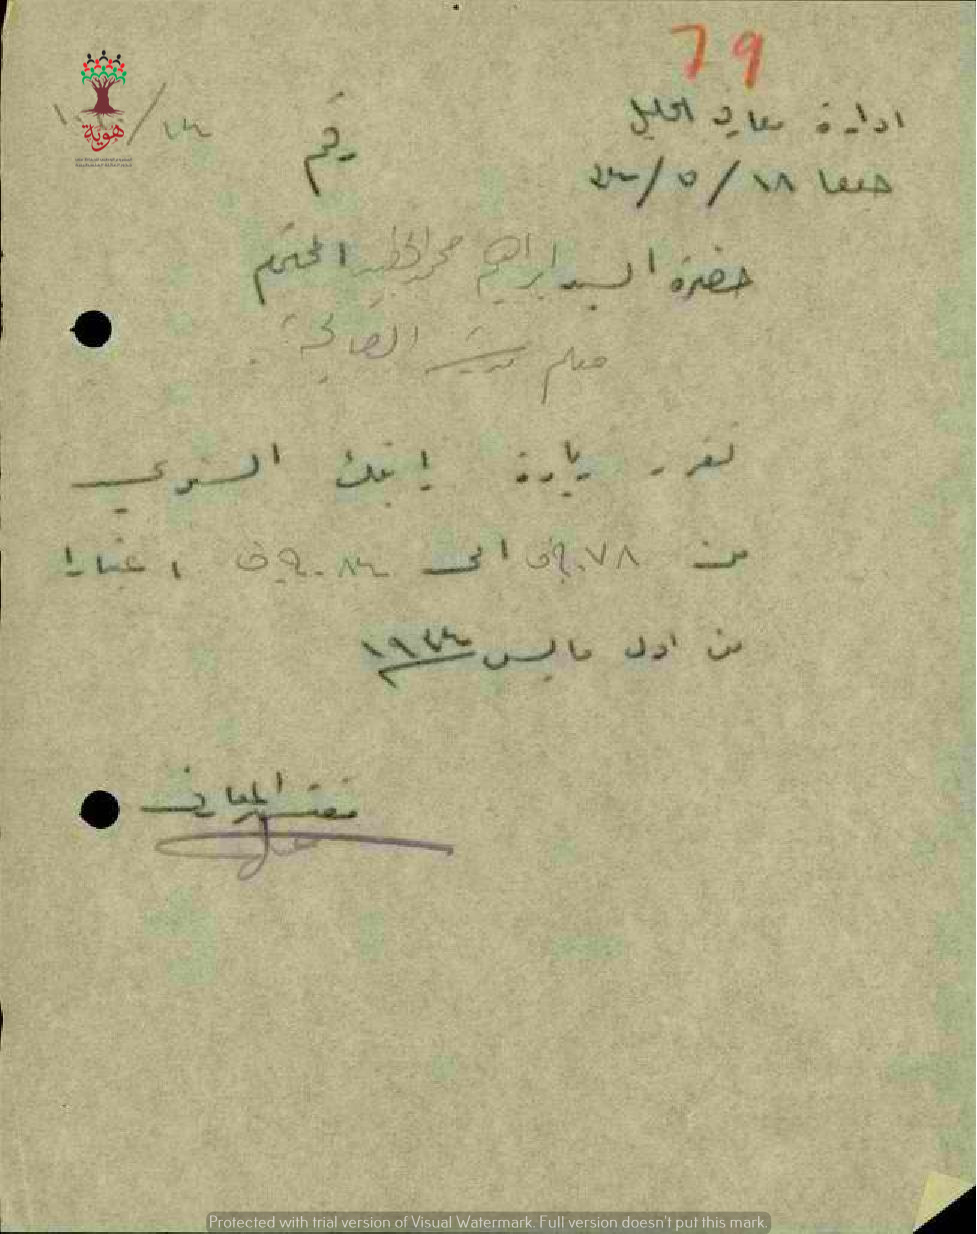 79
ادارة معارف الجليل
رقم
حيفا ١٨ / ٥ /
حضرة السيد ابراهيم محمد الخطيب المحترم
معلم مدرسة الصالحية
تقرر زيادة راتبك السنوي
من ٧٨ ج.ف الى ٨٤ ج.ف اعتبارا
من اول مايس ١٩٤٤
مفتش المعارف
هوية
Protected with trial version of Visual Watermark. Full version doesn't put this mark.